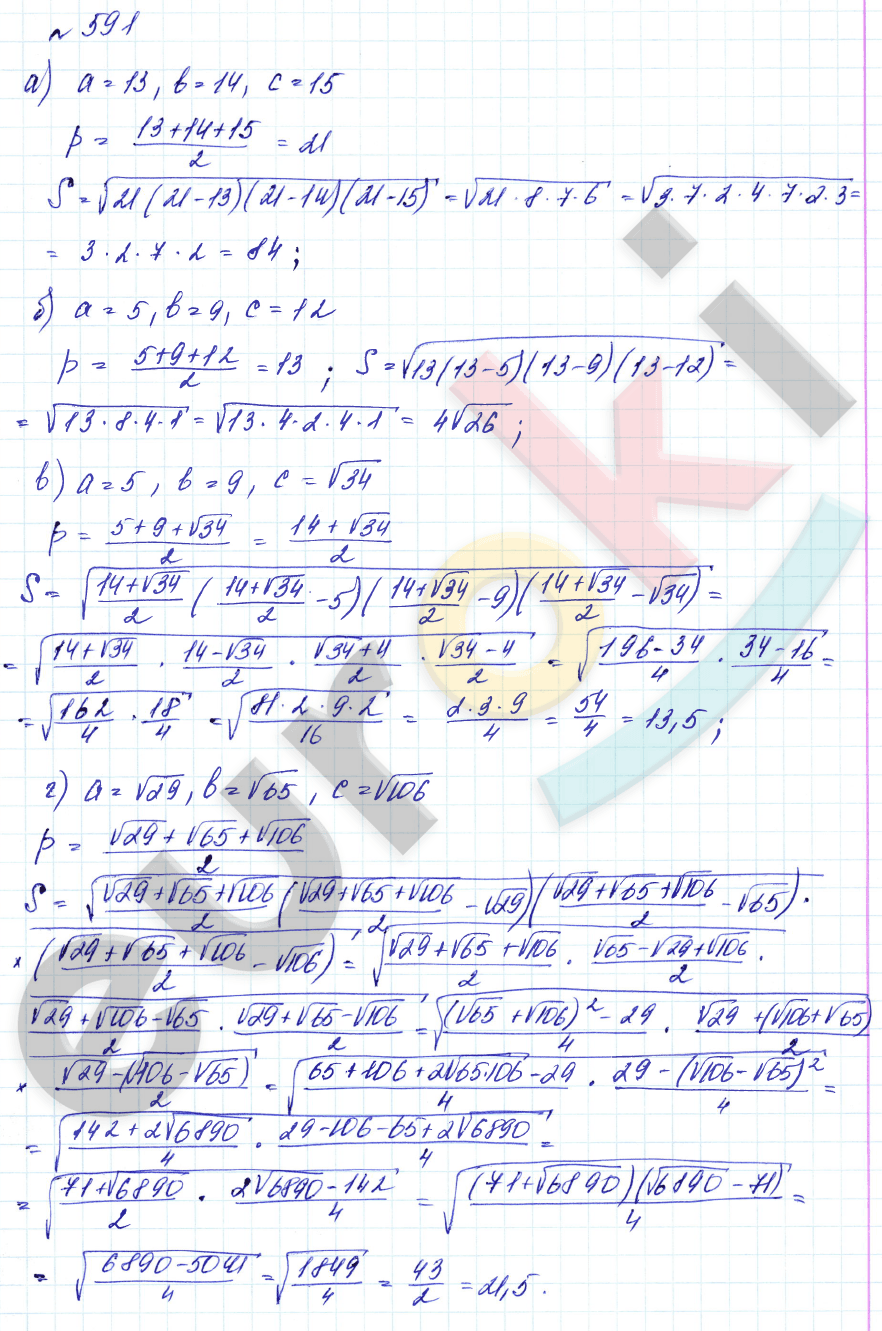 № 591
а) a = 13, b = 14, c = 15
p = (13+14+15)/2 = 21
S = √(21(21-13)(21-14)(21-15)) = √(21·8·7·6) = √(3·7·2·4·7·2·3) =
= 3·2·7·2 = 84;
б) a = 5, b = 9, c = 12
p = (5+9+12)/2 = 13; S = √(13(13-5)(13-9)(13-12)) =
= √(13·8·4·1) = √(13·4·2·4·1) = 4√26;
в) a = 5, b = 9, c = √34
p = (5+9+√34)/2 = (14+√34)/2
S = √((14+√34)/2 ((14+√34)/2 - 5)((14+√34)/2 - 9)((14+√34)/2 - √34)) =
= √((14+√34)/2 · (14-√34)/2 · (√34+4)/2 · (√34-4)/2) = √((196-34)/4 · (34-16)/4) =
= √(162/4 · 18/4) = √((81·2·9·2)/16) = (2·3·9)/4 = 54/4 = 13,5;
г) a = √29, b = √65, c = √106
p = (√29+√65+√106)/2
S = √((√29+√65+√106)/2 ((√29+√65+√106)/2 - √29)((√29+√65+√106)/2 - √65) ·
× ((√29+√65+√106)/2 - √106)) = √((√29+√65+√106)/2 · (√65-√29+√106)/2 ·
(√29+√106-√65)/2 · (√29+√65-√106)/2) = √(((√65+√106)²-29)/4 · (√29+(√106+√65))/2
× (√29-(√106-√65))/2) = √((65+106+2√65·106-29)/4 · (29-(√106-√65)²)/4) =
= √((142+2√6890)/4 · (29-106-65+2√6890)/4) =
= √((71+√6890)/2 · (2√6890-142)/4) = √(((71+√6890)(√6890-71))/4) =
= √((6890-5041)/4) = √(1849/4) = 43/2 = 21,5.
euroki